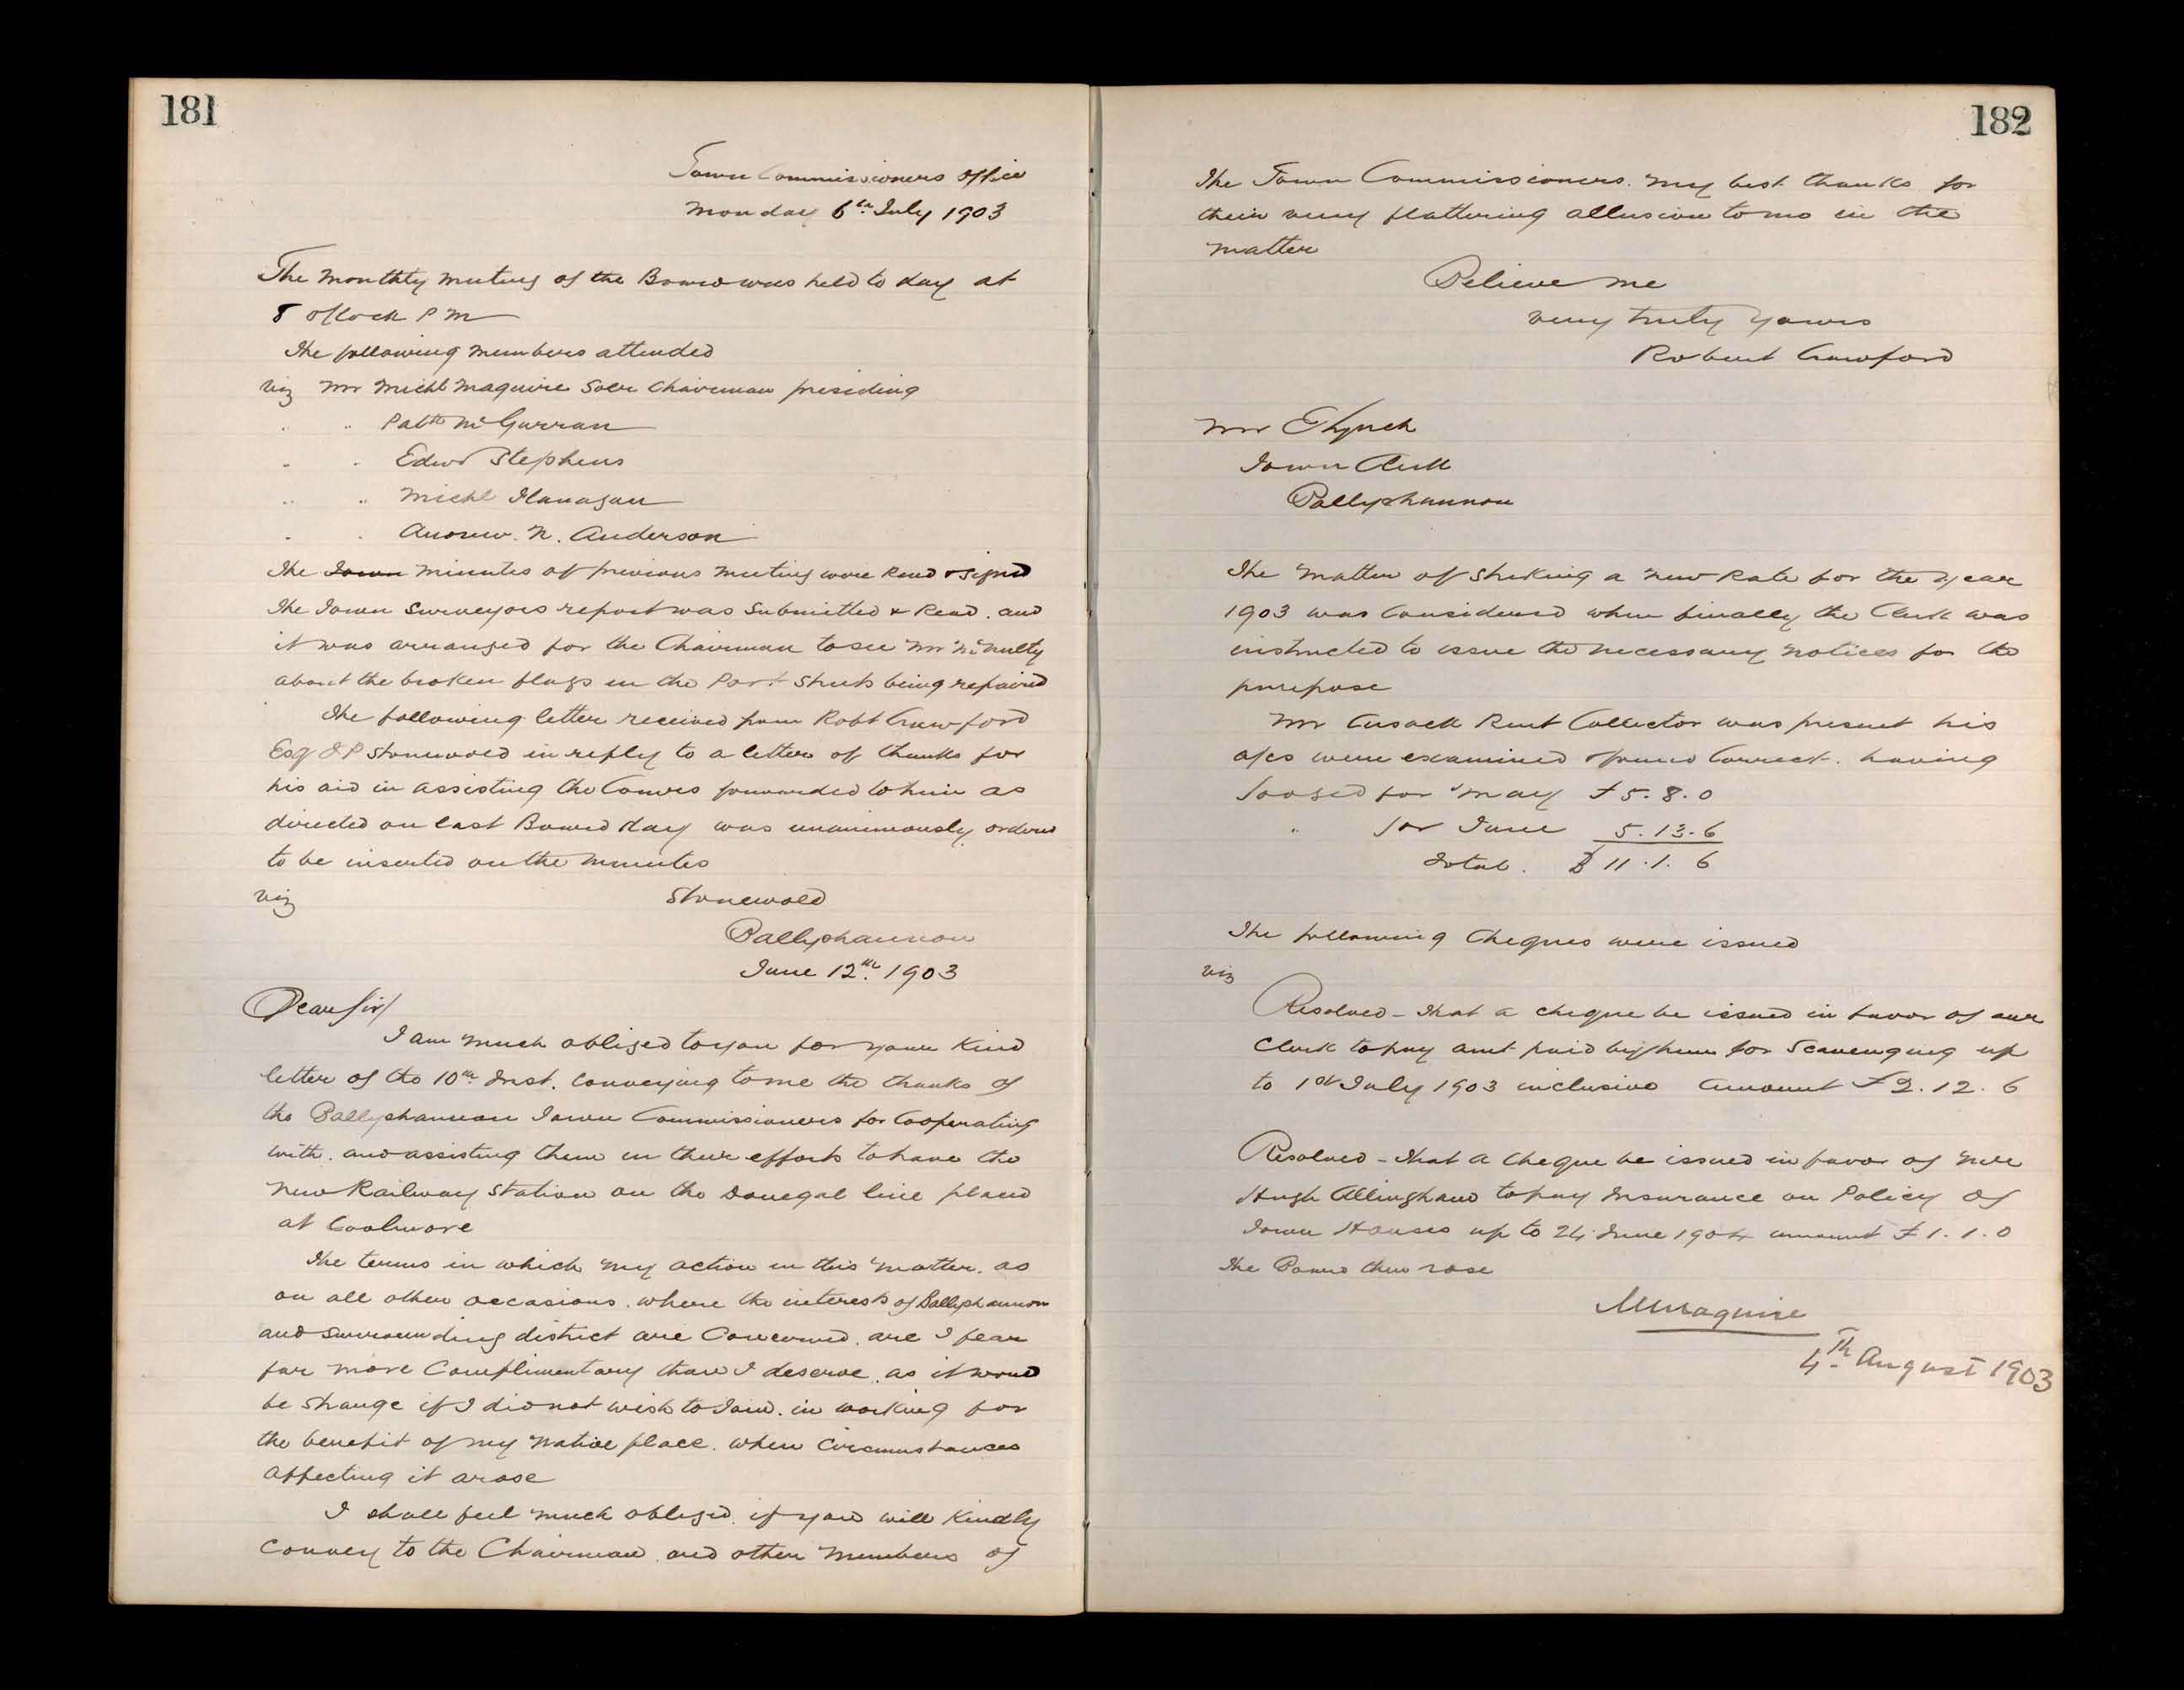 181
Town Commissioners Office
Monday 6th July 1903
The Monthly Meeting of the Board was held to day at
8 oClock P M
The following Members attended
viz Mr Michl Maguire Solr Chairman presiding
" " Patk McGurran
" " Edwd Stephens
" " Michl Flanagan
" " Andrew. N. Anderson
The Town Minutes of previous Meeting were Read & signed
The Town Surveyors report was Submitted & Read. and
it was arranged for the Chairman to see Mr McNulty
about the broken flags in the Port Streets being repaired
The following letter received from Robt Crawford
Esq J P Stonewold in reply to a letter of thanks for
his aid in assisting the Comrs forwarded to him as
directed on last Board day was unanimously ordered
to be inserted on the Minutes
viz Stonewold
Ballyshannon
June 12th 1903
Dear Sir/
I am much obliged to you for your Kind
letter of the 10th Inst. Conveying to me the thanks of
the Ballyshannon Town Commissioners for Cooperating
with. and assisting them in their efforts to have the
New Railway Station on the Donegal line placed
at Coolmore
The terms in which my action in this Matter. as
on all other occasions. where the interests of Ballyshannon
and surrounding district are Concerned. are I fear
far more Complimentary than I deserve. as it would
be Strange if I did not wish to Join. in working for
the benefit of my Native place. when Circumstances
affecting it arose
I shall feel much obliged. if you will Kindly
Convey to the Chairman. and other Members of
182
The Town Commissioners. My best thanks for
their very flattering allusion to me in the
Matter
Believe Me
very truly Yours
Robert Crawford
Mr E Lynch
Town Clerk
Ballyshannon
The Matter of Striking a New Rate for the Year
1903 was Considered when finally the Clerk was
instructed to issue the Necessary Notices for the
purpose
Mr Cusack Rent Collector was present his
a/cs were examined & found Correct. having
lodged for May £5.8.0
" for June 5.13.6
Total. £ 11.1.6
The following Cheques were issued
viz
Resolved - That a cheque be issued in favor of our
Clerk to pay amt paid by him for Scavenging up
to 1st July 1903 inclusive Amount £2.12.6
Resolved - That a Cheque be issued in favor of Mr
Hugh Allingham to pay Insurance on Policy of
Town Houses up to 24 June 1904 amount £1.1.0
The Board then rose
M Maguire
4th August 1903